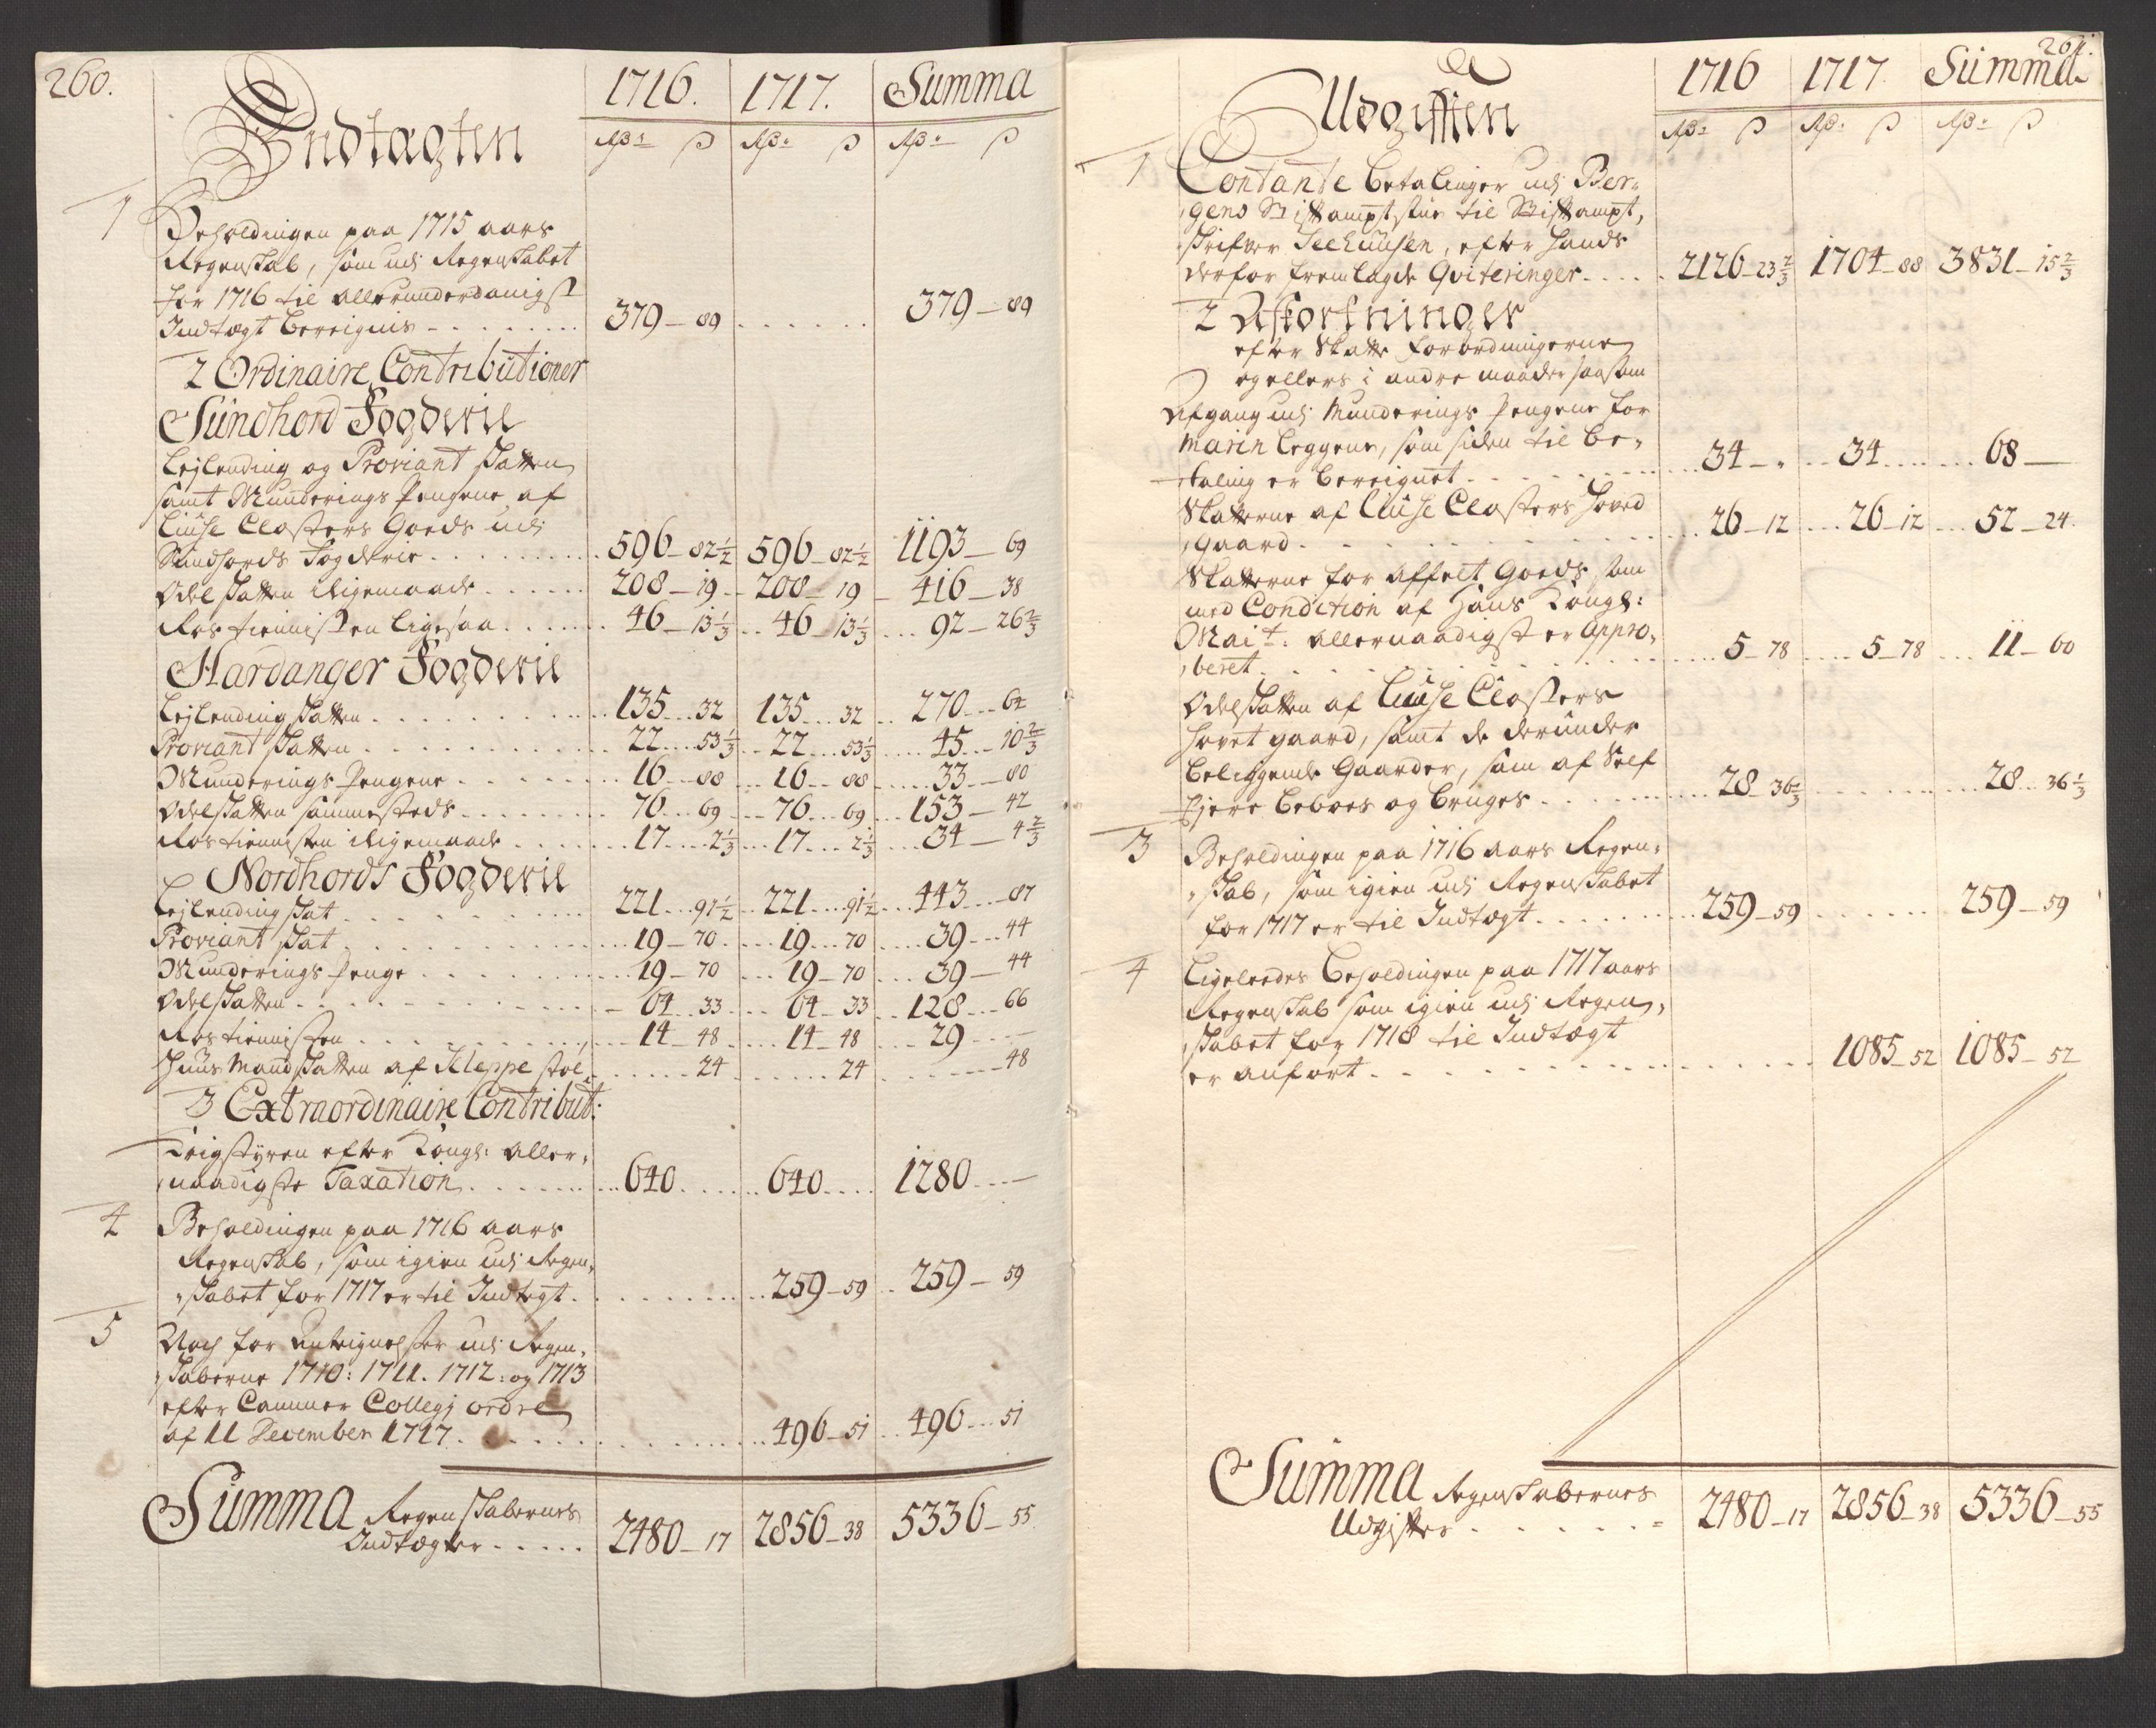 260.
Indtagten
1716. 1717. Summa
Rdr ß Rdr ß Rdr ß
1 Beholdingen paa 1715 aars
Regenskab, som udj Regenskabet
for 1716 til allerunderdanigst
Indtægt bereignis - - - - - - - 379 – 89 . . . . . . 379 – 89
2 Ordinaire Contributioner
Sundhord Fogderie
Lejlending og Proviant Skatten
samt Munderings Pengene af
Liuse Closters Goeds udj
Sundhords Fogderie . . . . . . . 596 – 82½ 596 – 82½ 1193 – 69
Odel Skatten iligemaade . . . . . . 208 – 19 . . 208 – 19 – 416 – 38
Ros tiennisten ligesaa . . . . . . 46 – 13⅓ . . 46 – 13⅓ . . . 92 – 26⅔
Hardanger Fogderie
Lejlending Skatten . . . . . . . . 135 . . . 32 135 . . . 32 . . 270 . . . 64
Proviant Skatten . . . . . . . . 22 . . . 53⅓ . . 22 . . . 53⅓ . . . . 45 . . . 10⅔
Munderings Pengene . . . . . . . 16 . . . 88 . . . 16 . . . 88 . . . . . 33 . . . 80
Odel Skatten sammesteds . . . . . . . 76 . . . 69 . . . 76 . . . 69 . . . 153 – 42
Ros tiennisten iligemaade . . . . . . . 17 . . . 2⅓ . . . 17 . . . 2⅓ . . . . 34 – 4⅔
Nordhords Fogderie
Lejlending Skat . . . . . . . . 221 . . . 91½ . . . 221 . . . 91½ . . . 443 . . . 87
Proviant Skat . . . . . . . . 19 – 70 . . . . 19 . . . 70 . . . . 39 . . . 44
Munderings Penge . . . . . . . . 19 – 70 . . . 19 – 70 . . . 39 – 44
Odel Skatten . . . . . . . . – 64 . . 33 . . . . 64 – 33 . . . 128 . . . 66
Ros tiennisten . . . . . . . . 14 – 48 . . . . 14 – 48 . . . . 29 . . .
Huus Mand Skatten af Kleppe stoel . . . . . . 24 . . . . . . 24 . . . . . . 48
3 Extraordinaire Contribut:
Krigstyren efter Kongl: aller-
naadigste Taxation . . . . . . . . 640 . . . . . . 640 . . . . 1280 . . . –
4 Beholdingen paa 1716 aars
Regenskab, som igien udj Regen-
skabet for 1717 er til Indtegt . . . . . . . . . . . 259 – 59 . . 259 – 59
5 Noch for Antegnelser udj Regen-
skaberne 1710: 1711. 1712: og 1713
efter Cammer Collegj ordre
af 11 December 1717 . . . . . . . . . . . . . 496 – 51 . . . 496 . . . 51
Summa Regenskabernes
Indtægter . . . . . 2480 – 17 2856 – 38 5336 – 55
261.
Udgifften
1716 1717 Summa
Rdr ß Rdr ß Rdr ß
1 Contante betalinger udj Ber-
gens Stiftampt stue til Stiftampt-
skrifver Seehuusen, efter hands
derfor fremlagde Qviteringer . . . . . 2126 – 23⅔ 1704 – 88 3831 – 15⅔
2 Afkortninger
efter Skatte forordningerne
og ellers i andre maader saasom
Afgang udj Munderings Pengene for
Marin leggene, som siden til be-
taling er bereignet . . . . . . . . . 34 – „ . . . 34 . . . . . . . 68 –
Skatterne af Liuse Closters hoved
gaard . . . . . . . . . . . . . 26 – 12 . . . 26 – 12 . . . 52 – 24.
Skatterne for affect Goeds som
med Condition af Hans Kongl:
Mait. allernaadigst er appro-
beret . . . . . . . . . . . . . 5 – 78 . . . . 5 – 78 . . . 11 – 60
Odel Skatten af Liuse Closters
hovet gaard, samt de derunder
beliggende Gaarder, som af Self
Ejere beboes og bruges . . . . . . . . . 28 – 36⅓ . . . . . . . . . . . 28 . . 36⅓
3 Beholdingen paa 1716 aars Regen-
skab, som igien udj Regenskabet
for 1717 er til Indtægt . . . . . . . . 259 – 59 . . . . . . . 259 – 59
4 Ligeledes beholdingen paa 1717 aars
Regenskab som igien udj Regen-
skabet for 1718 til Indtægt
er anført . . . . . . . . . . . . . . . . . . 1085 – 52 1085 – 52
Summa Regenskabernes
Udgifter . . . . . . = 2480 – 17 2856 – 38 5336 – 55